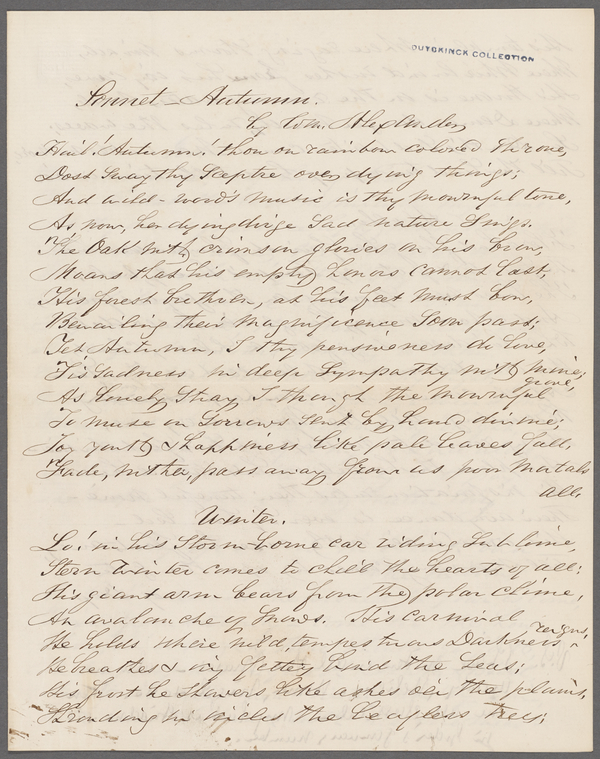 DUYCKINCK COLLECTION
Sonnet - Autumn.
by Wm. Alexander,
Hail! Autumn! thou on rainbow colored throne,
Dost sway thy sceptre over dying things;
And wild-wood's music is thy mournful tone,
As now, her dying dirge sad nature sings.
The Oak with crimson glories on his brow,
Moans that his empty honors cannot last,
His forest brethren, at his feet must bow,
Bewailing their magnificence soon past;
Yet Autumn, I thy pensiveness do love,
Tis sadness in deep sympathy with mine;
As lonely stray I through the mournful grove,
To muse on sorrows sent by hand divine;
For youth & happiness like pale leaves fall,
Fade, wither, pass away from us poor mortals
all.
Winter.
Lo! in his storm-borne car riding sublime,
Stern Winter comes to chill the hearts of all:
His giant arm bears from the polar clime,
An avalanche of snows. His carnival
He holds where wild, tempestuous Darkness reigns,
He breathes & icy fetters bind the seas;
His frost he showers, like ashes o'er the plains,
Binding in icicles the leafless trees;